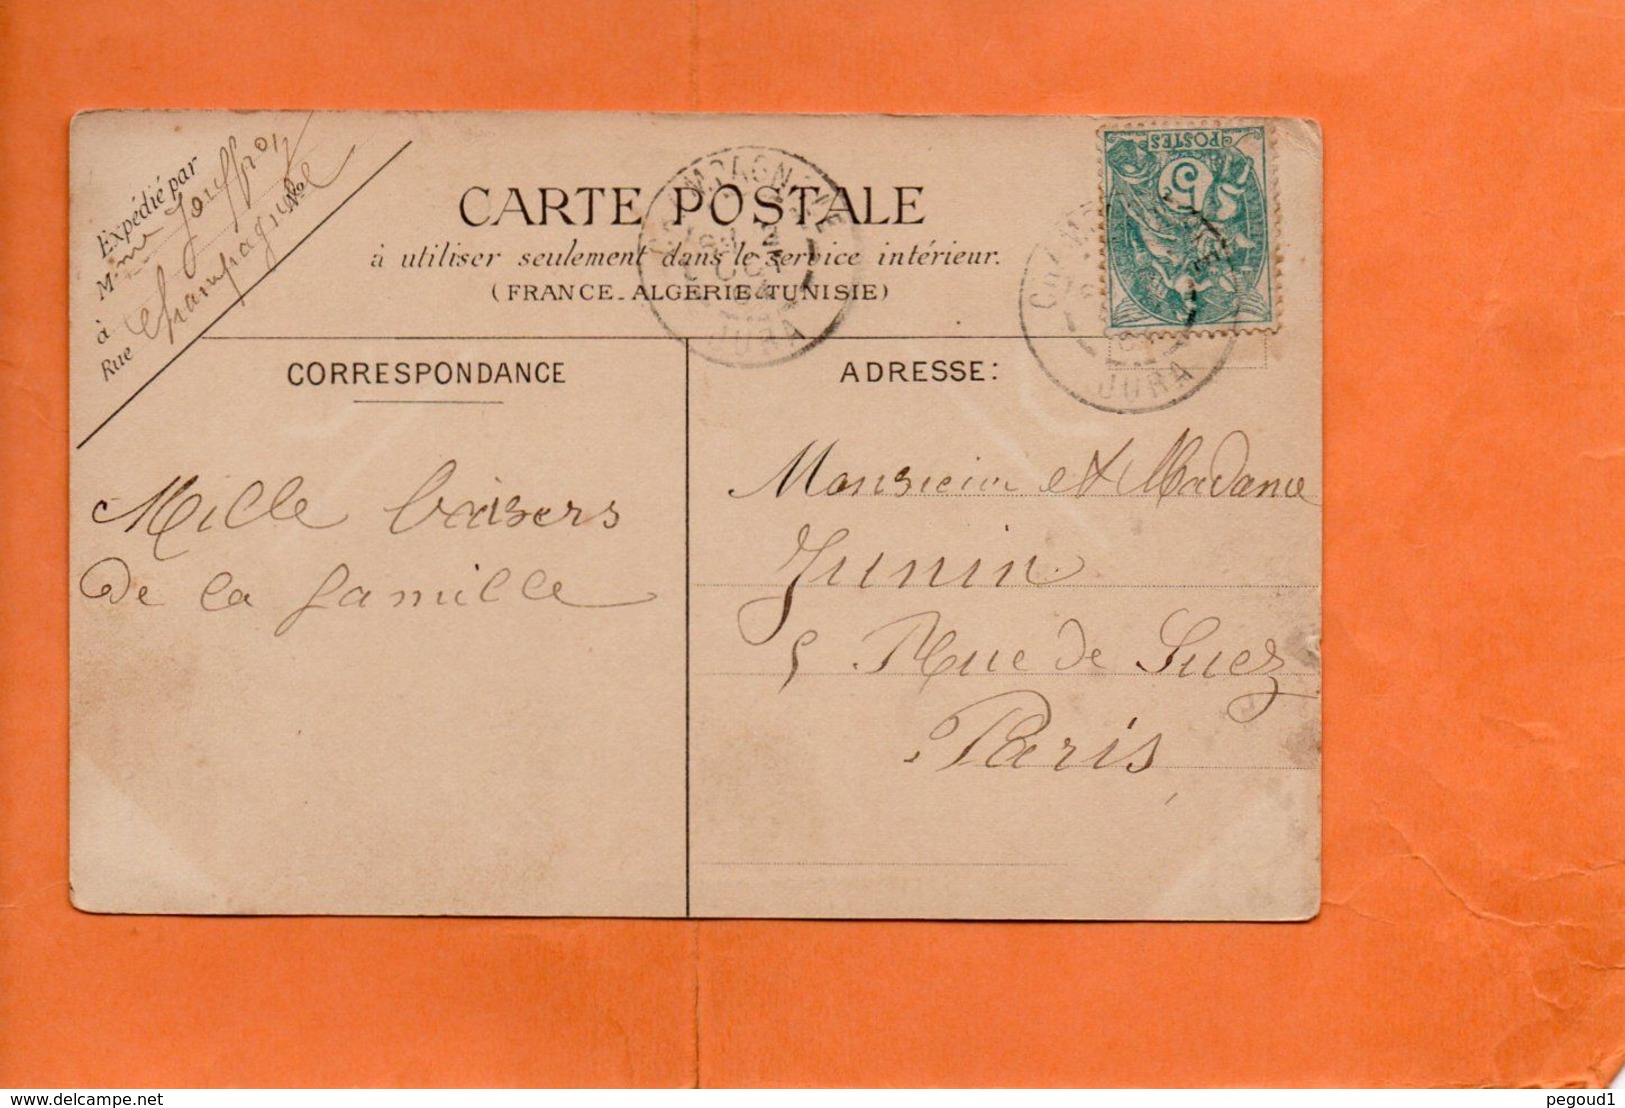 Expédié par
Mme Jouffroy
à Champagnole
Rue No
CARTE POSTALE
à utiliser seulement dans le service intérieur.
(FRANCE_ALGERIE-TUNISIE)
POSTES
5
CHAMPAGNOLE
JURA
JURA
CORRESPONDANCE
Mille baisers
de la famille
ADRESSE:
Monsieur et Madame
Junin
5 Rue de Suez
Paris
www.delcampe.net
pegoud1